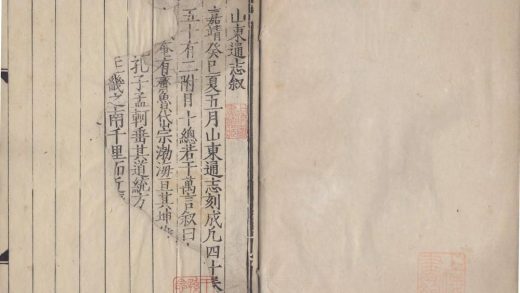 山東通志叙
嘉靖癸巳夏五月山東通志刻成凡四十卷
五十有二附目十總若干萬言叙曰
有齊魯岱宗渤海亘其坤
孔子孟軻垂其道統方
王畿之南千里而近